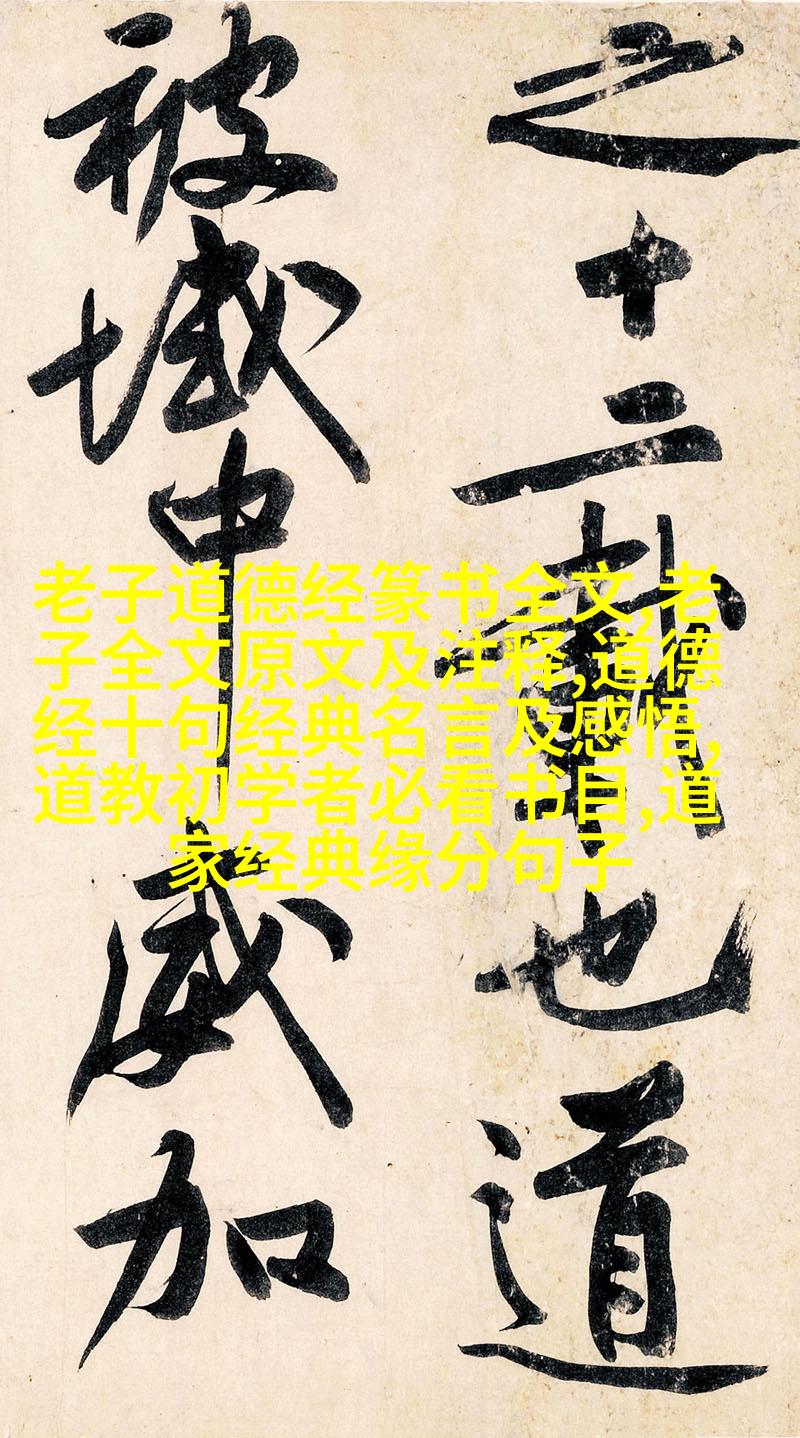 之十二也道
被域中威加
老子道德经篆书全文,老
子全文原文及注释,道德
经十句经典名言及感悟,
道教初学者必看书目,道
家经典缘分句子